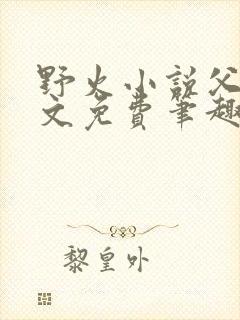 野火小说父
文免费笔趣
黎皇外